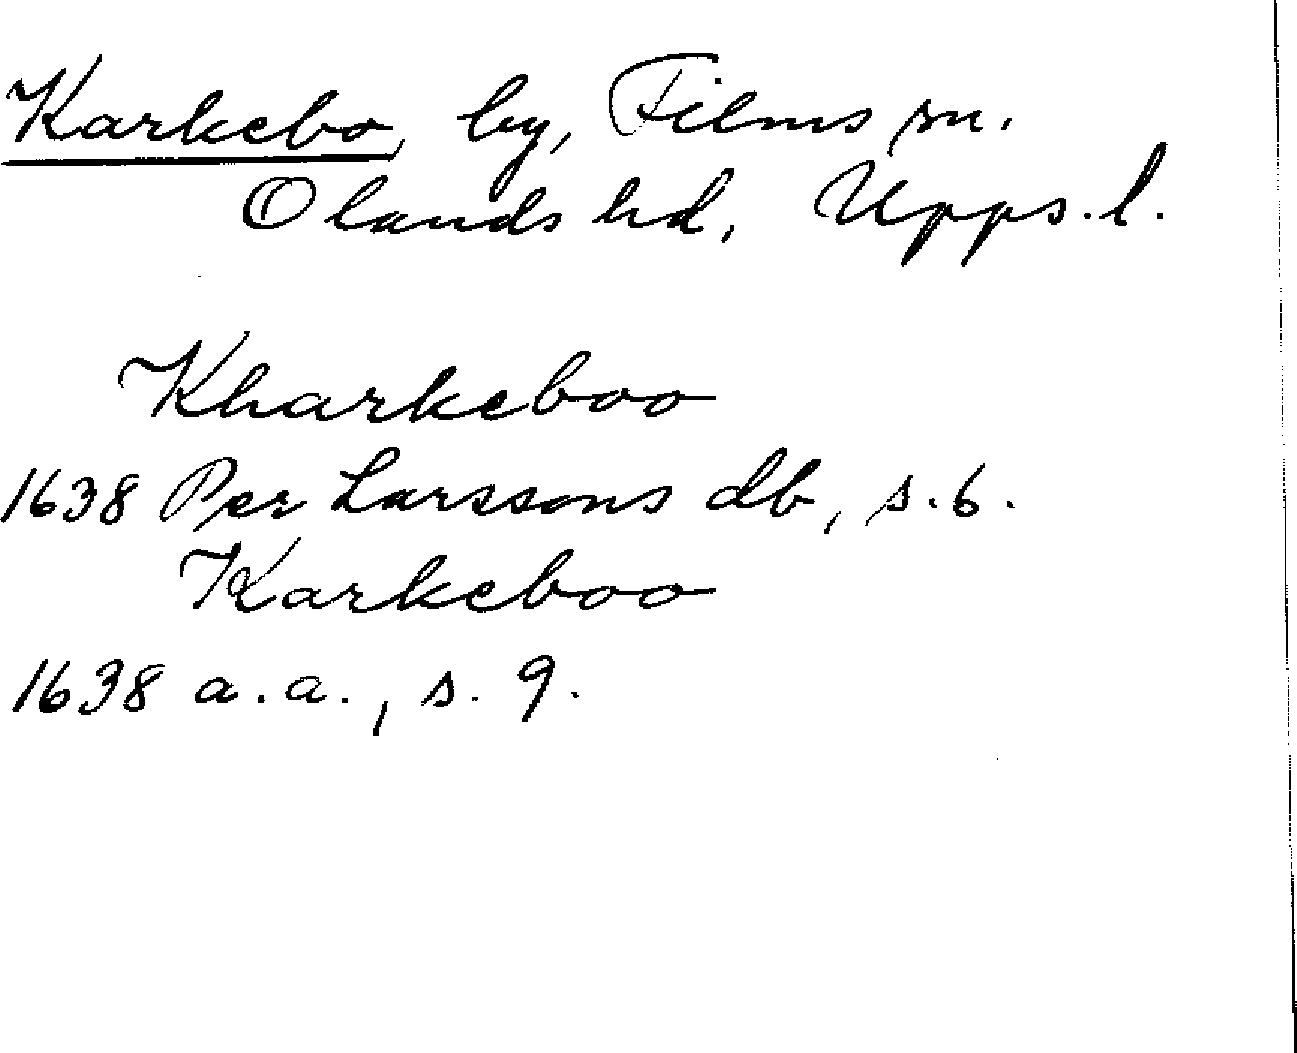 Karkebo, by, Films sn.
Olands hd, Upps. l.
Kharkeboo
1638 Per Larssons db, s. 6.
Karkeboo
1638 a.a., s. 9.